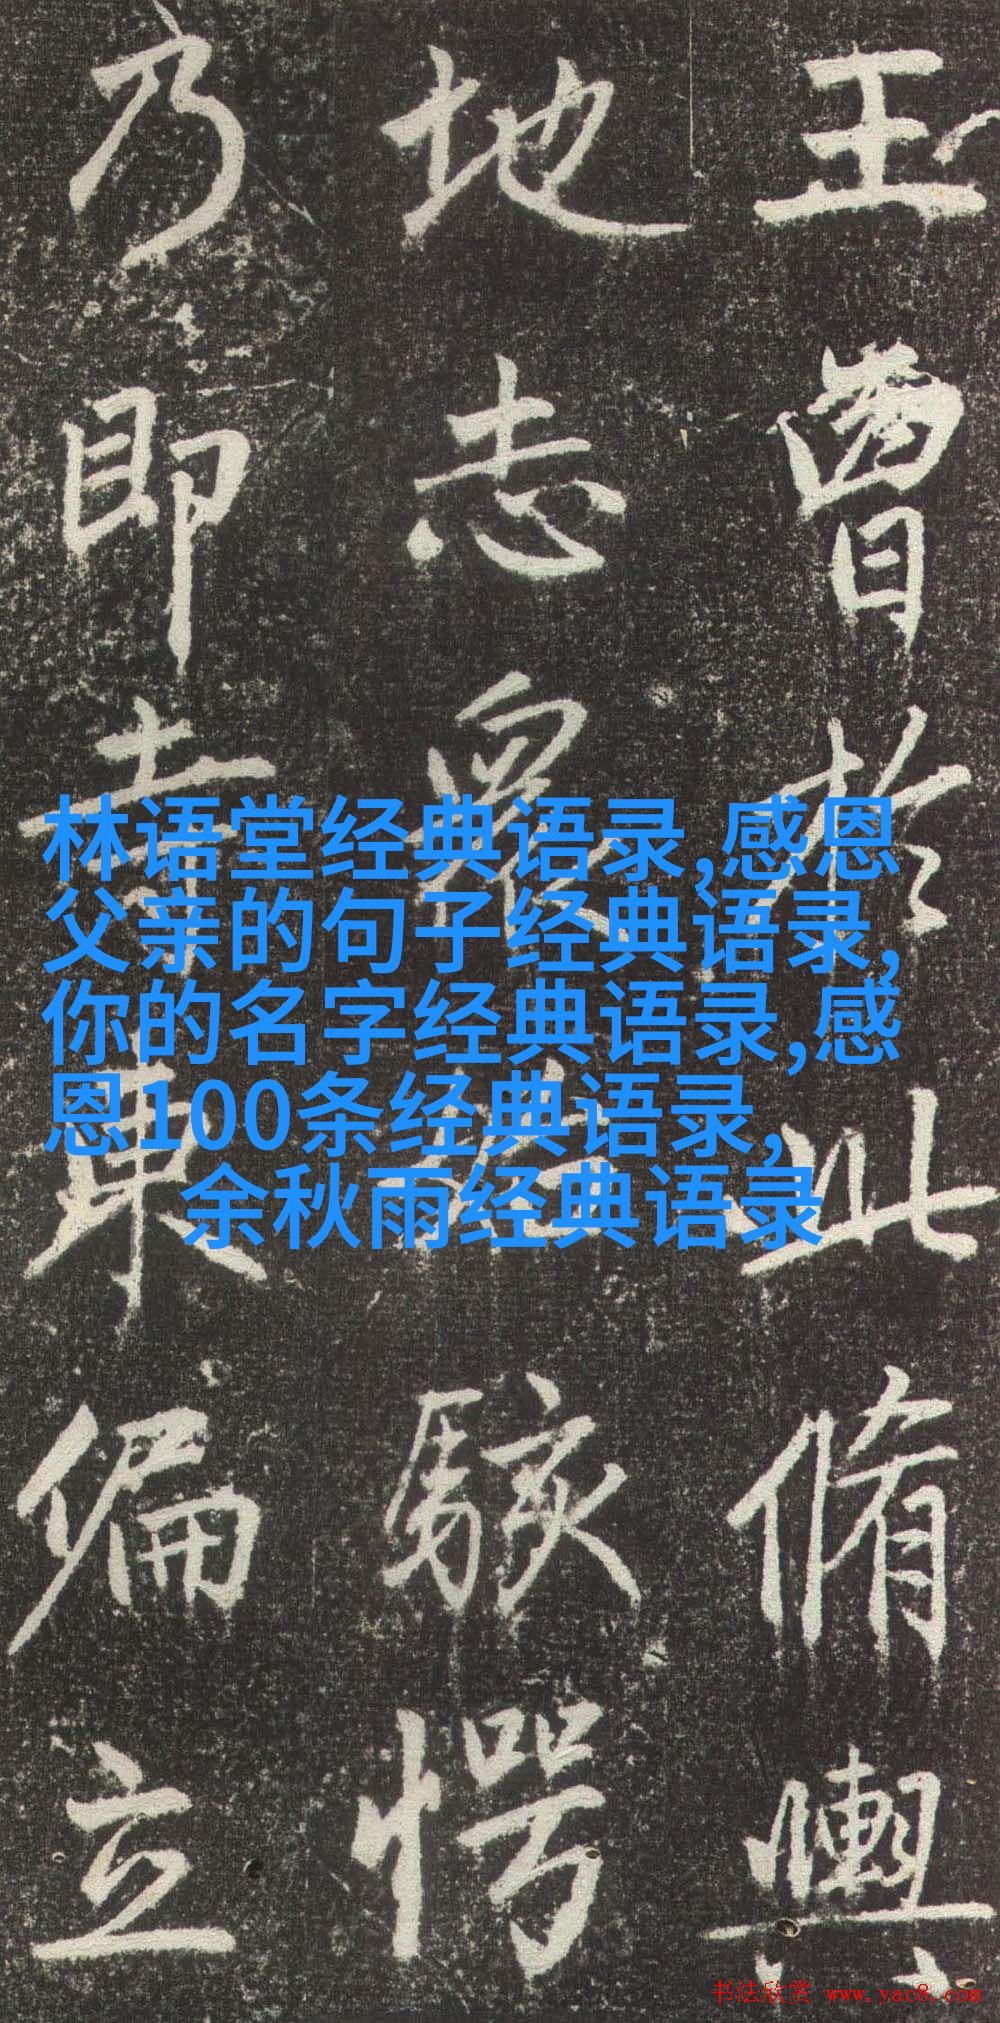 王曾於此脩輿
地志眾駭愕
乃即寺東偏立
林语堂经典语录,感恩
父亲的句子经典语录,
你的名字经典语录,感
恩100条经典语录,
余秋雨经典语录
书法欣赏 www.yac8.com